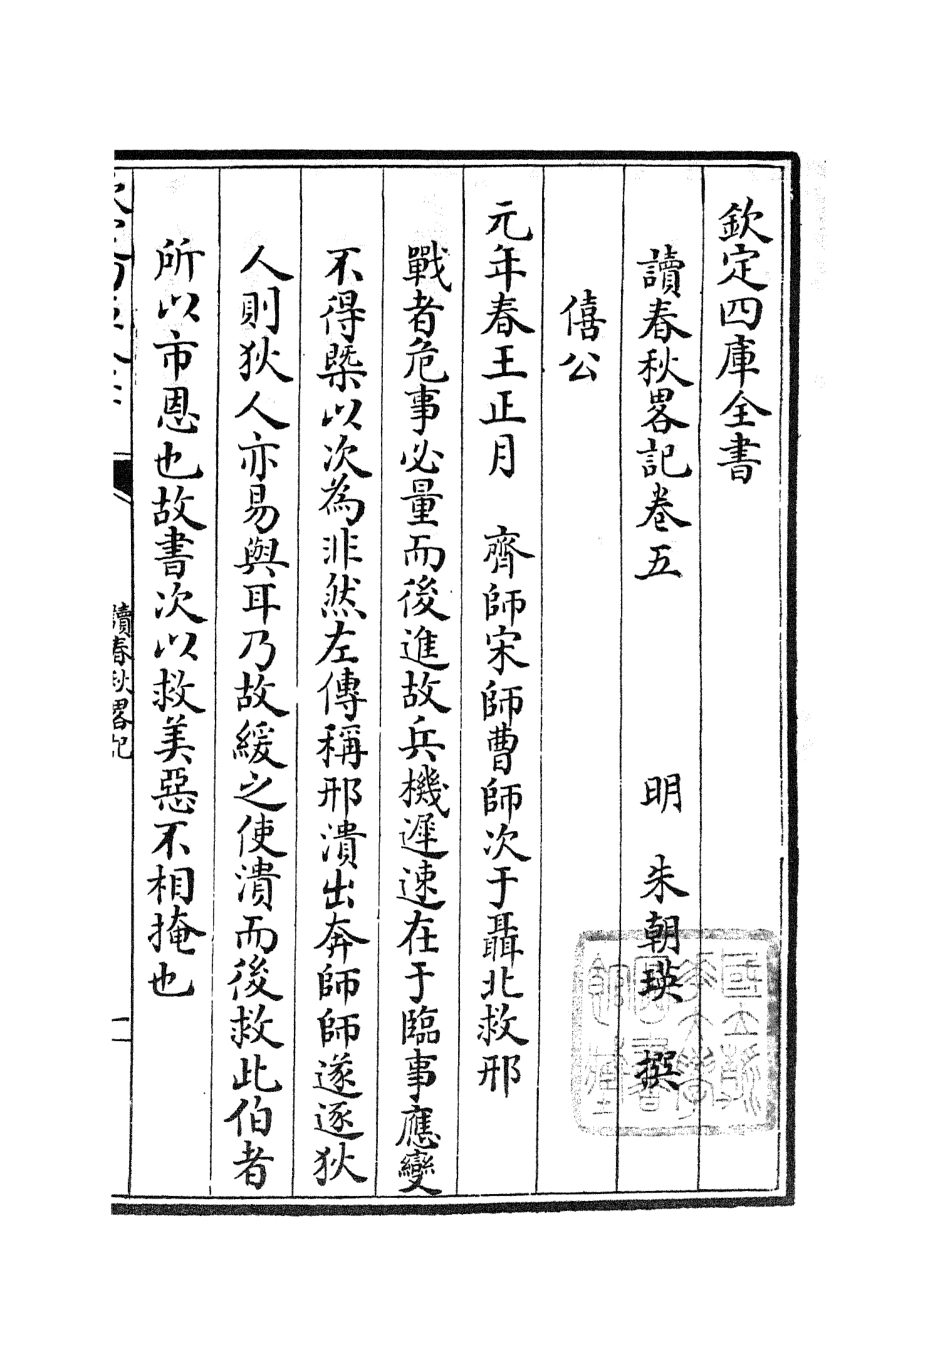 欽定四庫全書
讀春秋畧記卷五　明　朱朝瑛　撰
僖公
元年春王正月　齊師宋師曹師次于聶北救邢
戰者危事必量而後進故兵機遲速在于臨事應變
不得槩以次為非然左傳稱邢潰出奔師師遂逐狄
人則狄人亦易與耳乃故緩之使潰而後救此伯者
所以市恩也故書次以救美惡不相掩也
讀春秋畧記